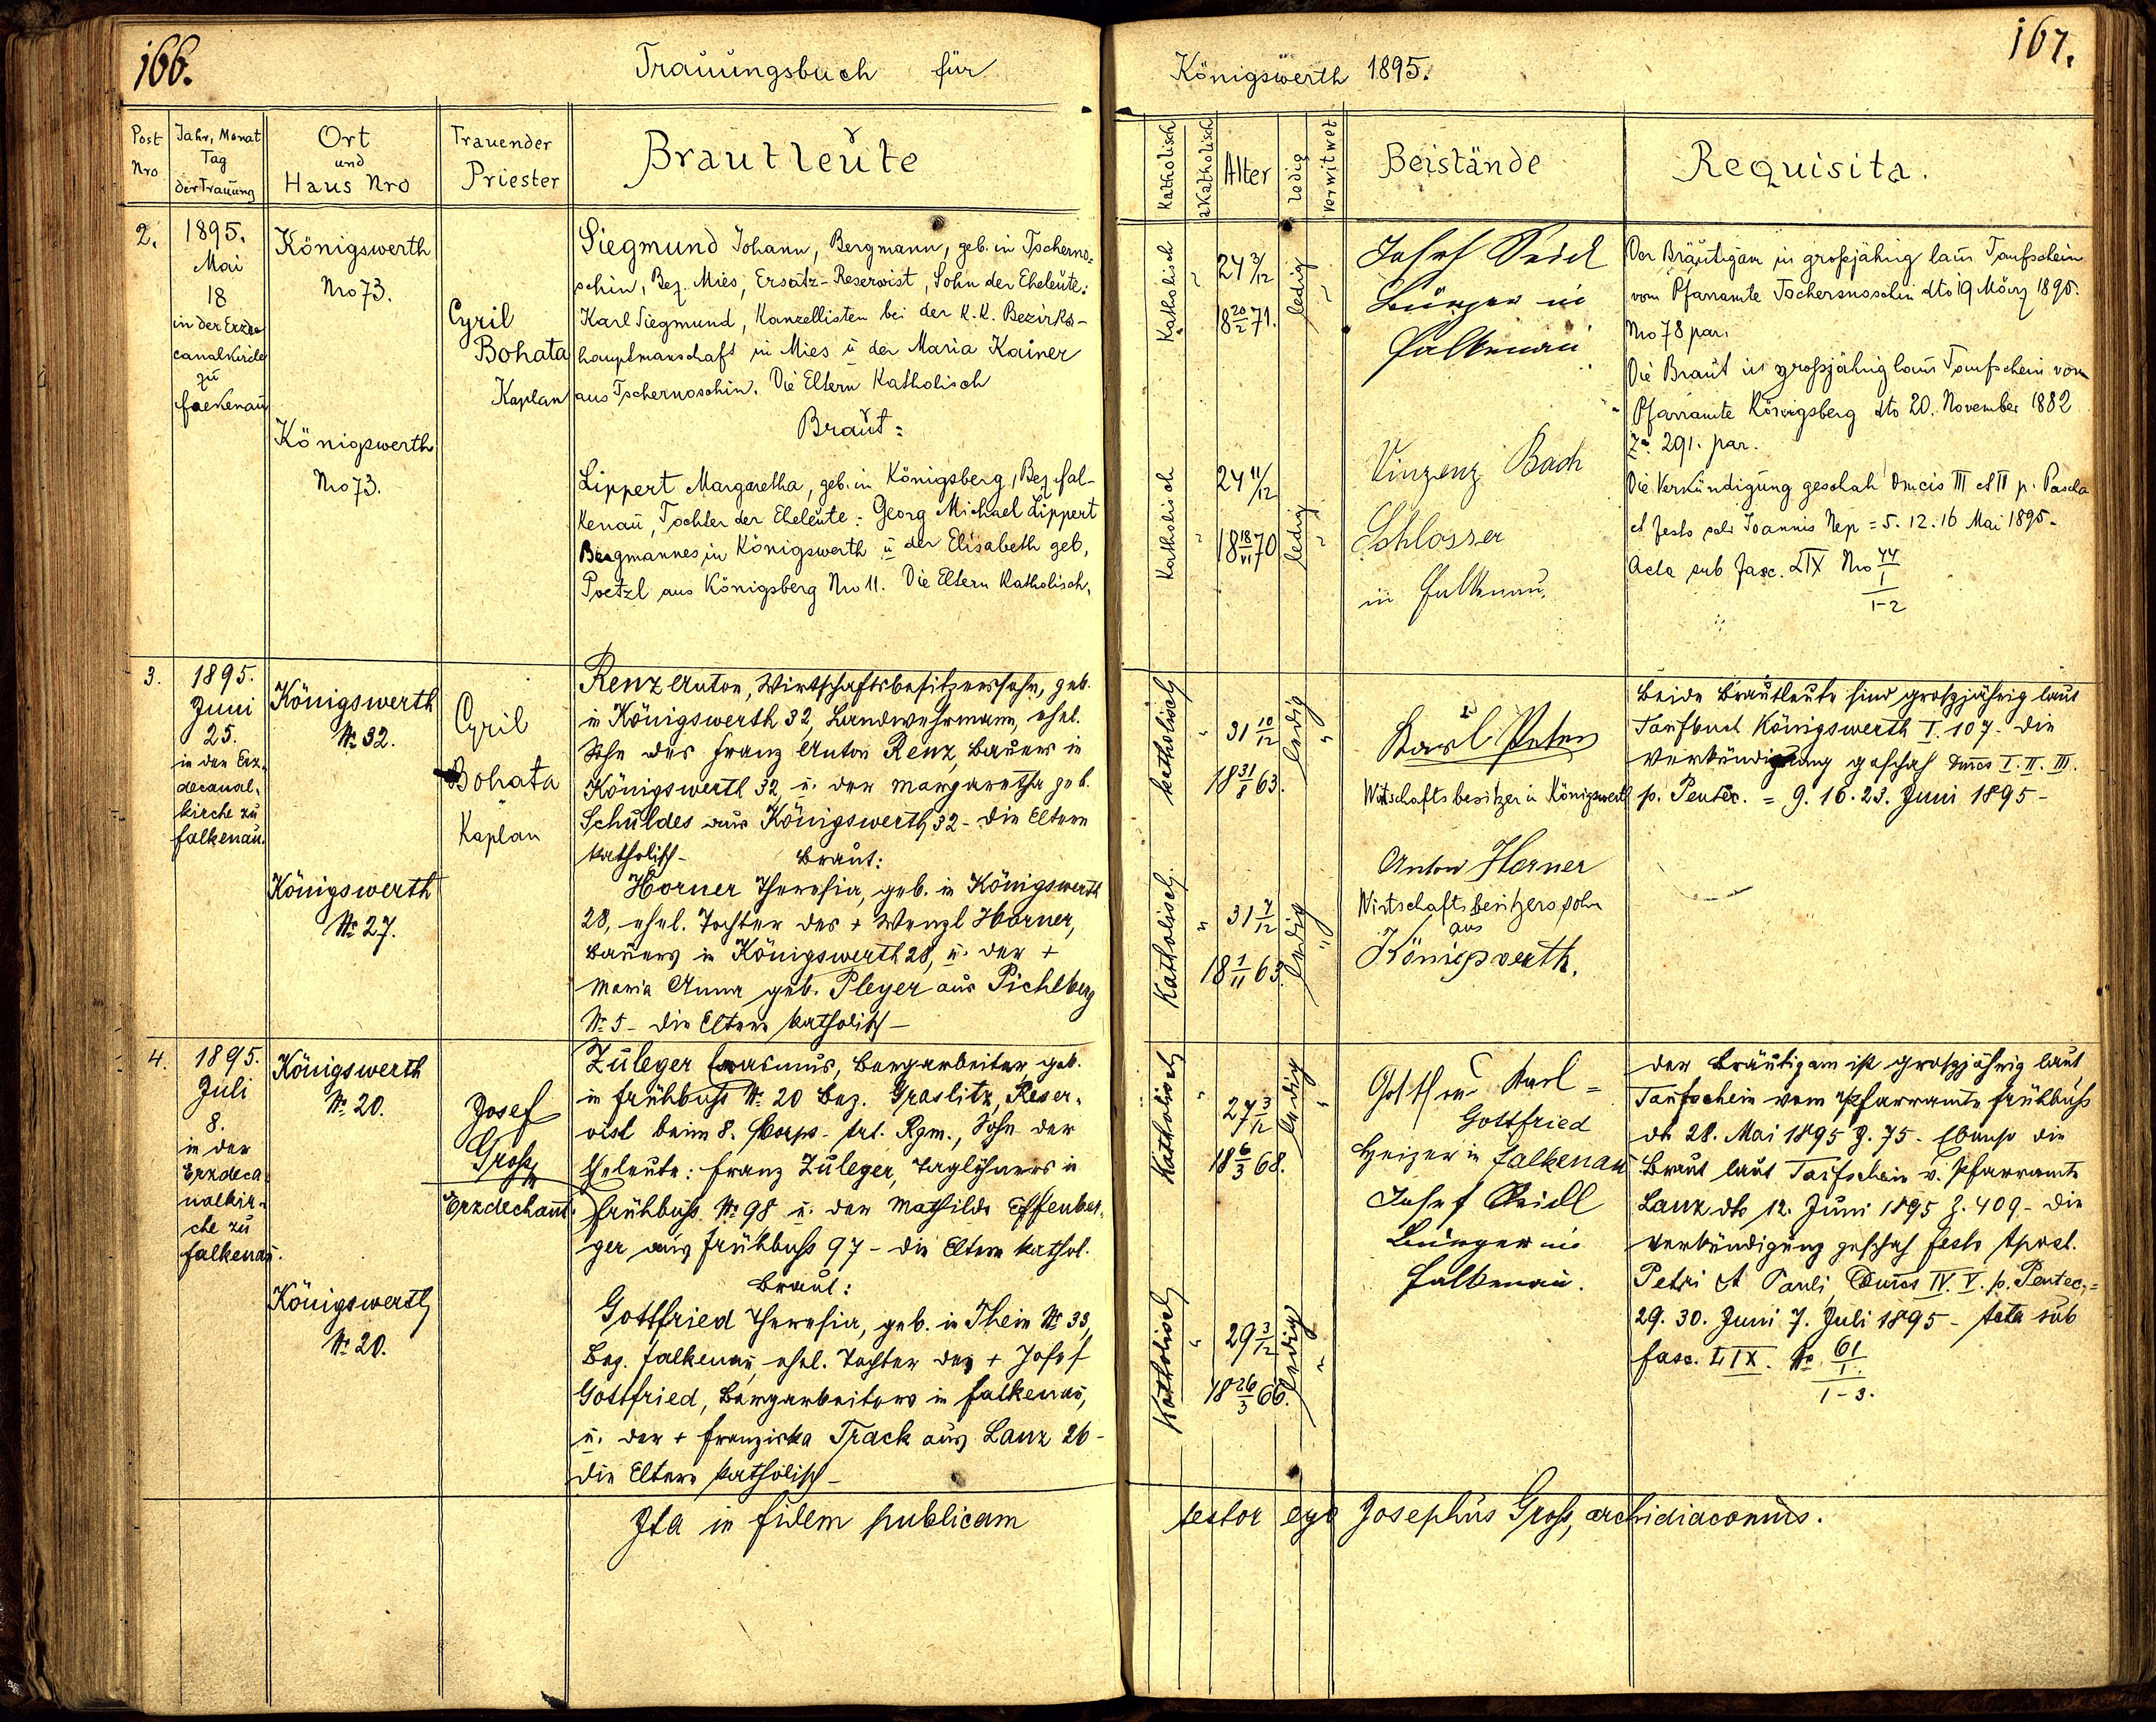 166.
Trauungsbuch für
Post Nro
Jahr, Monat Tag der Trauung
Ort und Haus Nro
Trauender Priester
Brautleute
2.
1895.
Mai
18
in der Erzde
canalkirche
zu
Falkenau
Königswerth
Nro 73.
Königswerth
Nro 73.
Cyril
Bohata
Kaplan
Siegmund Johann, Bergmann, geb. in Tscherno-
schin, Bez. Mies, Ersatz-Reservist, Sohn der Eheleute:
Karl Siegmund, Kanzellisten bei der K.K. Bezirks-
hauptmanschaft in Mies u der Maria Kainer
aus Tschernoschin. Die Eltern Katholisch
Braut:
Lippert Margaretha, geb. in Königsberg, Bez. Fal-
kenau, Tochter der Eheleute: Georg Michael Lippert
Bergmannes in Königswerth u der Elisabeth geb.
Poetzl aus Königsberg Nro 11. Die Eltern Katholisch.
3.
1895.
Juni
25.
in der Erz-
decanal-
kirche zu
Falkenau.
Königswerth
№ 32.
Königswerth
№ 27.
Cyril
Bohata
Kaplan
Renz Anton, Wirtschaftsbesitzerssohn, geb.
in Königswerth 32, Landwehrmann, ehel.
Sohn des Franz Anton Renz, Bauers in
Königswerth 32, u. der Margaretha geb.
Schuldes aus Königswerth 32 - die Eltern
katholisch -
Braut:
Horner Theresia, geb. in Königswerth
28, ehel. Tochter des + Wenzl Horner,
Bauers in Königswerth 28, u. der +
Maria Anna geb. Pleyer aus Pichlberg
№ 5 - die Eltern katholisch -
4.
1895.
Juli
8.
in der
Erzdeca-
nalkir-
che zu
Falkenau.
Königswerth
№ 20.
Königswerth
№ 20.
Josef
Gross
Erzdechant.
Zuleger Erasmus, Bergarbeiter, geb.
in Frühbuss № 20 Bez. Graslitz, Reser-
vist beim 8. Corps- Art. Rgm., Sohn der
Eheleute: Franz Zuleger, Taglöhners in
Frühbuss № 98 u. der Mathilde Effenber-
ger aus Frühbuss 97 - die Eltern kathol.
Braut:
Gottfried Theresia, geb. in Thein № 33,
Bez. Falkenau, ehel. Tochter des + Josef
Gottfried, Bergarbeiters in Falkenau,
u. der + Franziska Track aus Lanz 26 -
die Eltern katholisch -
Ita in fidem publicam
Königswerth 1895.
167.
Katholisch
akatholisch
Alter
Ledig
Verwitwet
Beistände
Requisita.
Katholisch
"
24 3/12
18 20/2 71.
ledig
"
Josef Seidl
Bürger in
Falkenau
Katholisch
"
24 11/12
18 18/VI 70
ledig
"
Vinzenz Bach
Schlosser
in Falkenau.
Der Bräutigam in großjährig laus Taufschein
vom Pfarramte Tschernoschin dto 19 März 1895.
Nro 78 par.
Die Braut is großjährig laus Taufschein vom
Pfarramte Königsberg dto 20. November 1882
Z. 291. par.
Die Verkündigung geschah Dmcis III et II p. Pascha
et festo Joannis Nep = 5. 12. 16 Mai 1895.
Acta sub Fasc. LIX Nro 44/1
1-2
katholisch
"
31 10/12
18 31/8 63.
ledig
"
Karl Peter
Wirtschaftsbesitzer in Königswerth
Katholisch.
"
31 7/12
18 1/11 63.
ledig
"
Anton Horner
Wirtschaftsbesitzerssohn
aus
Königswerth.
Beide Brautleute sind grossjährig laut
Taufbuch Königswerth I. 107. Die
Verkündigung geschah Dmcs I. II. III.
p. Pentec. = 9. 16. 23. Juni 1895 -
Katholisch
"
27 3/12
18 6/3 68.
ledig
"
Karl =
Gottfried
Heizer in Falkenau
Josef Seidl
Bürger in
Falkenau.
Katholisch
"
29 3/12
18 26/3 66.
ledig
"
Der Bräutigam ist grossjährig laut
Taufschein vom Pfarramte Frühbuss
dto 28. Mai 1895 Z. 75. Ebenso die
Braut laut Taufschein v. Pfarramte
Lanz dto 12. Juni 1895 Z. 409 - Die
Verkündigung geschah festo Apost.
Petri et Pauli, Dmcs IV. V. p. Pentec. =
29. 30. Juni 7. Juli 1895 - Acta sub
fasc. LIX. № 61/1.
1-3.
testor ego Josephus Gross, archidiaconus.